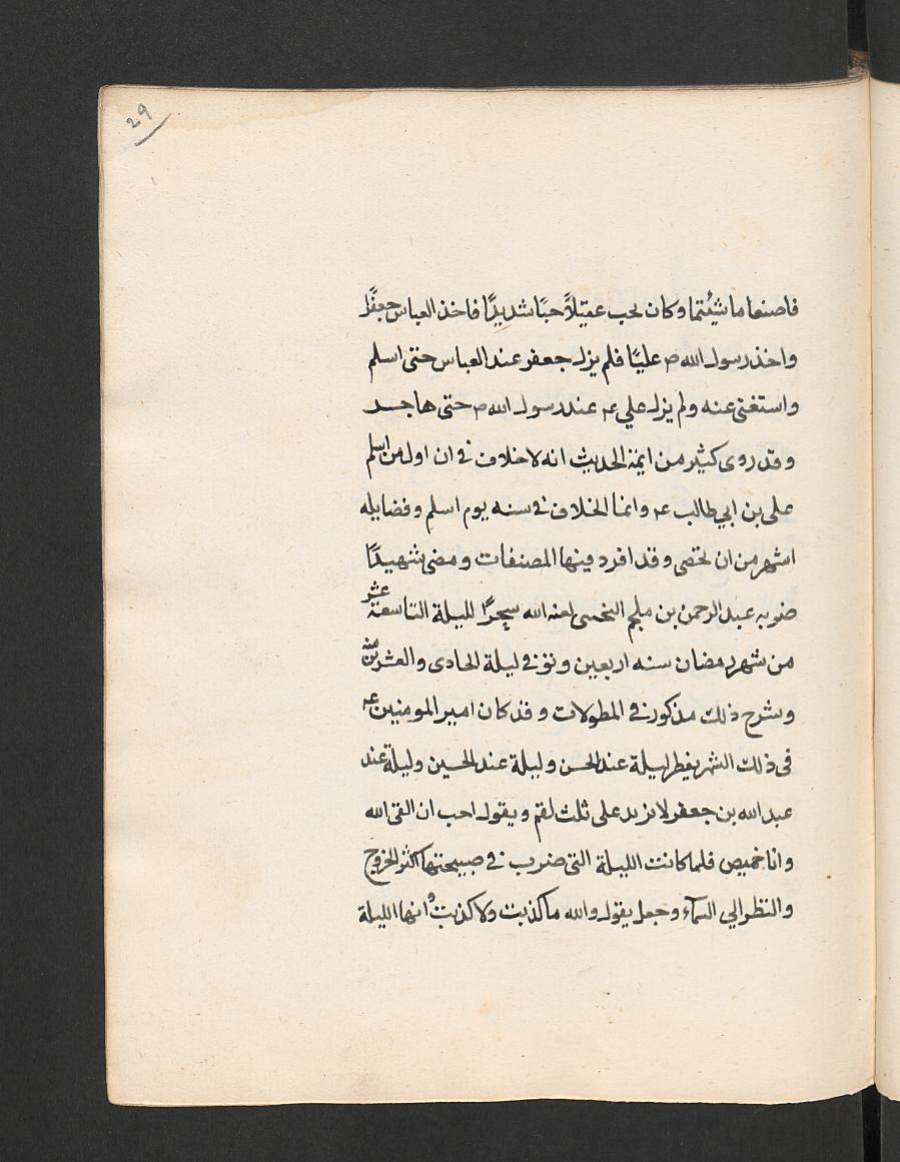 29
فاصنعا ما شيئتما وكان يحب عقيلاً حبًا شديدًا فاخذ العباس جعفرًا
واخذ رسول الله ص عليًا فلم يزل جعفر عند العباس حتى اسلم
واستغنى عنه ولم يزل علي عه عند رسول الله ص حتى هاجر
وقد روى كثير من ايمة الحديث انه لا خلاف في ان اول من اسلم
على بن ابي طالب عه وانما الخلاف في سنه يوم اسلم وفضايله
اشهر من ان تحصى وقد افرد فيها المصنفات ومضى شهيدًا
ضربه عبد الرحمن بن ملجم لعنه الله سحرًا لليلة التاسعة عشر
من شهر رمضان سنه اربعين وتوفي ليلة الحادى والعشرين منه
وشرح ذلك مذكور في المطولات وقد كان امير المومنين عه
فى ذلك الشهر يفطر ليلة عند الحسن وليلة عند الحسين وليلة عند
عبد الله بن جعفر لا يزيد على ثلث لقم ويقول احب ان القى الله
وانا خميص فلما كانت الليلة التى ضرب في صبيحتها اكثر الخروج
والنظر الي السمآء وجعل يقول والله ما كذبت ولا كذبت وانها الليلة